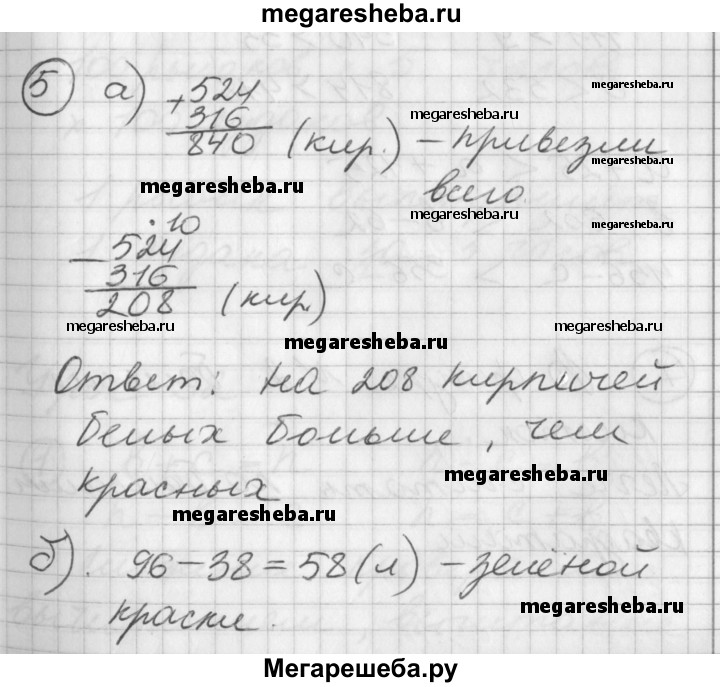 megaresheba.ru
5 а) +524
316
840 (кир.) – привезли
всего.
megaresheba.ru
megaresheba.ru
megaresheba.ru
megaresheba.ru
megaresheba.ru
·10
– 524
316
208 (кир.)
megaresheba.ru
megaresheba.ru
megaresheba.ru
Ответ: на 208 кирпичей
белых больше, чем
красных
megaresheba.ru
megaresheba.ru
б). 96 – 38 = 58 (л) – зелёной
краски.
megaresheba.ru
Мегарешеба.ру